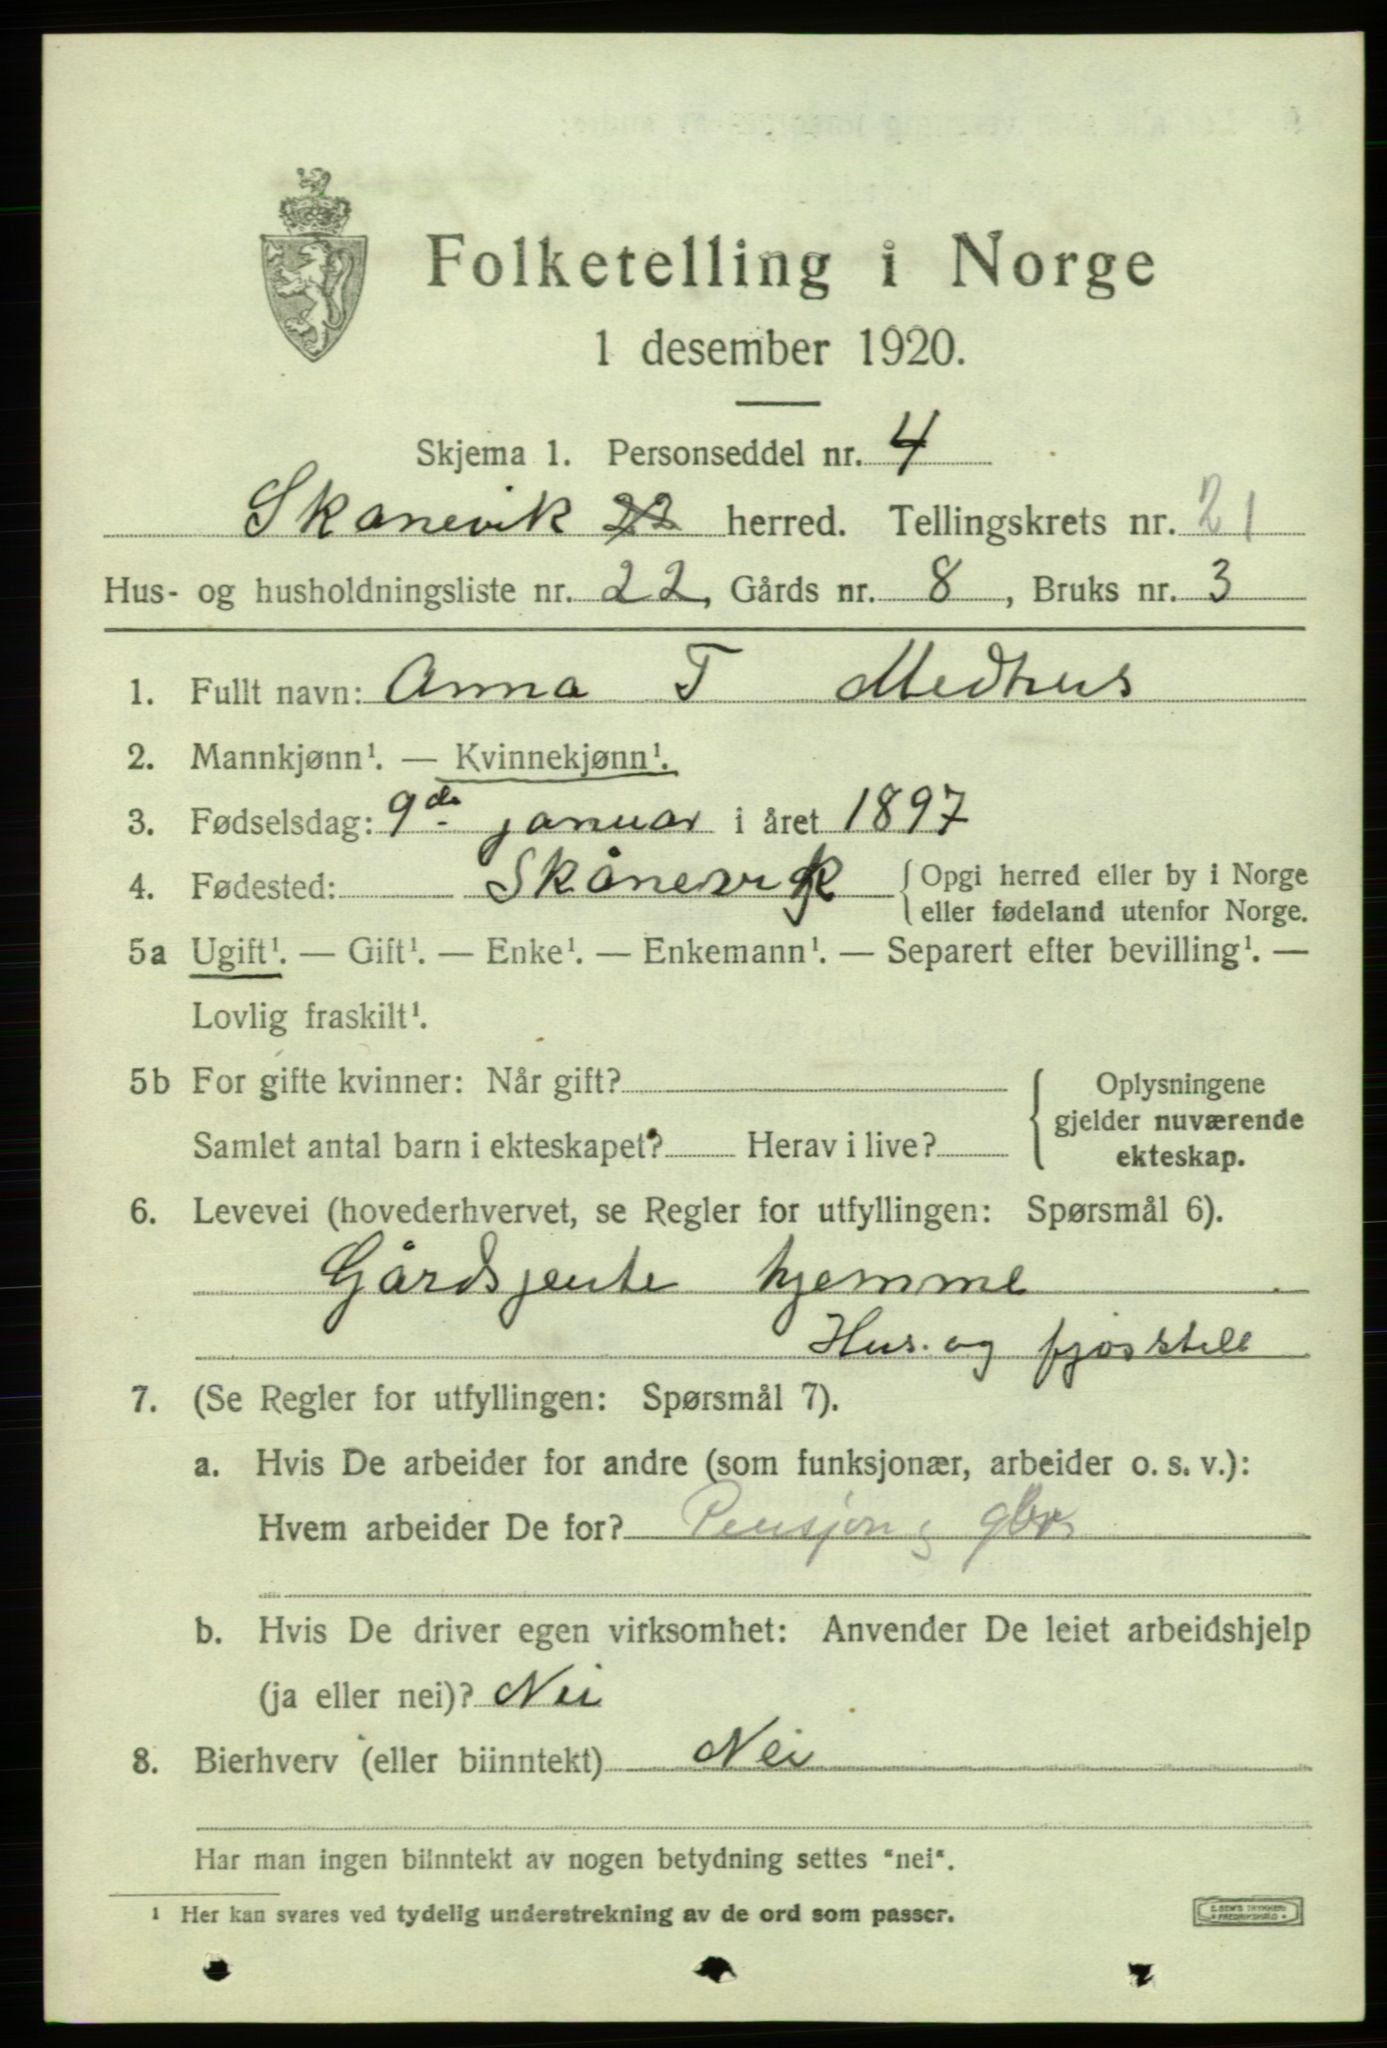 Folketelling i Norge
1 desember 1920.
Skjema 1. Personseddel nr. 4
Skanevik 22 herred. Tellingskrets nr. 21
Hus- og husholdningsliste nr. 22, Gårds nr. 8, Bruks nr. 3
1. Fullt navn: Anna T Medhus
2. Mannkjønn¹. — Kvinnekjønn¹.
3. Fødselsdag: 9de januar i året 1897
4. Fødested: Skånevik {Opgi herred eller by i Norge
eller fødeland utenfor Norge.
5a Ugift¹. — Gift¹. — Enke¹. — Enkemann¹. — Separert efter bevilling¹. —
Lovlig fraskilt¹.
5b For gifte kvinner: Når gift?
Samlet antal barn i ekteskapet? Herav i live?
{Oplysningene
gjelder nuværende
ekteskap.
6. Levevei (hovederhvervet, se Regler for utfyllingen: Spørsmål 6).
Gårdsjente hjemme
Hus. og fjosstell
7. (Se Regler for utfyllingen: Spørsmål 7).
a. Hvis De arbeider for andre (som funksjonær, arbeider o. s. v.):
Hvem arbeider De for? Pensjon, gbr
b. Hvis De driver egen virksomhet: Anvender De leiet arbeidshjelp
(ja eller nei)? Nei
8. Bierhverv (eller biinntekt) Nei
Har man ingen biinntekt av nogen betydning settes "nei".
¹ Her kan svares ved tydelig understrekning av de ord som passer.